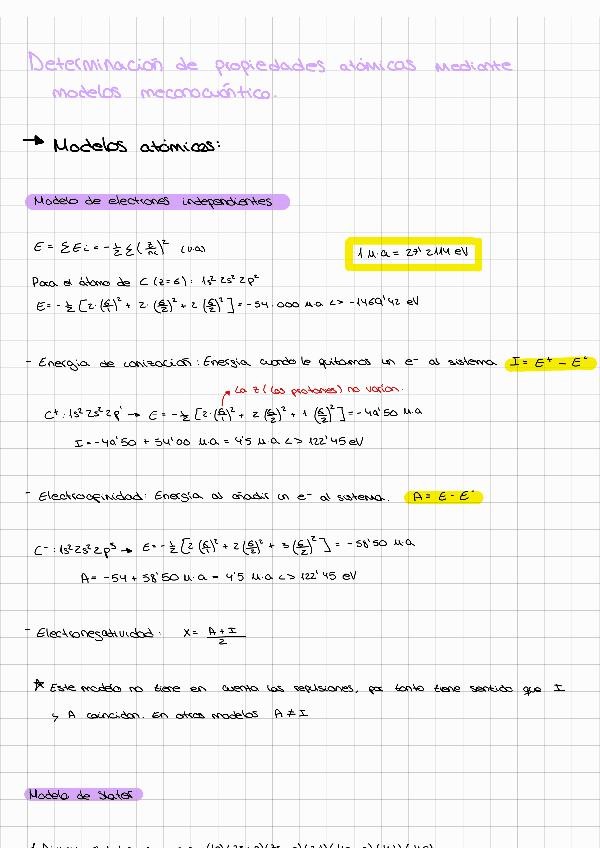 Determinación de propiedades atómicas mediante
modelos mecanocuántico.
→ Modelos atómicas:
Modelo de electrones independientes
E = ΣEi = -1/2 Σ(z/ni)² (u.a)
1 u.a = 27'2114 eV
Para el átomo de C (z=6): 1s² 2s² 2p²
E = -1/2 [2·(6/1)² + 2·(6/2)² + 2(6/2)²] = -54.000 u.a <> -1469'42 eV
- Energía de ionización: Energía cuando le quitamos un e⁻ al sistema. I = E⁺ - E°
La z (los protones) no varían.
C⁺: 1s² 2s² 2p¹ → E = -1/2 [2·(6/1)² + 2(6/2)² + 1(6/2)²] = -49'50 u.a
I = -49'50 + 54'00 u.a = 4'5 u.a <> 122'45 eV
- Electroafinidad: Energía al añadir un e⁻ al sistema. A = E - E⁻
C⁻: 1s² 2s² 2p³ → E = -1/2 [2(6/1)² + 2(6/2)² + 3(6/2)²] = -58'50 u.a
A = -54 + 58'50 u.a = 4'5 u.a <> 122'45 eV
- Electronegatividad: X = (A + I)/2
* Este modelo no tiene en cuenta las repulsiones, por tanto tiene sentido que I
y A coincidan. En otros modelos A ≠ I
Modelo de Slater